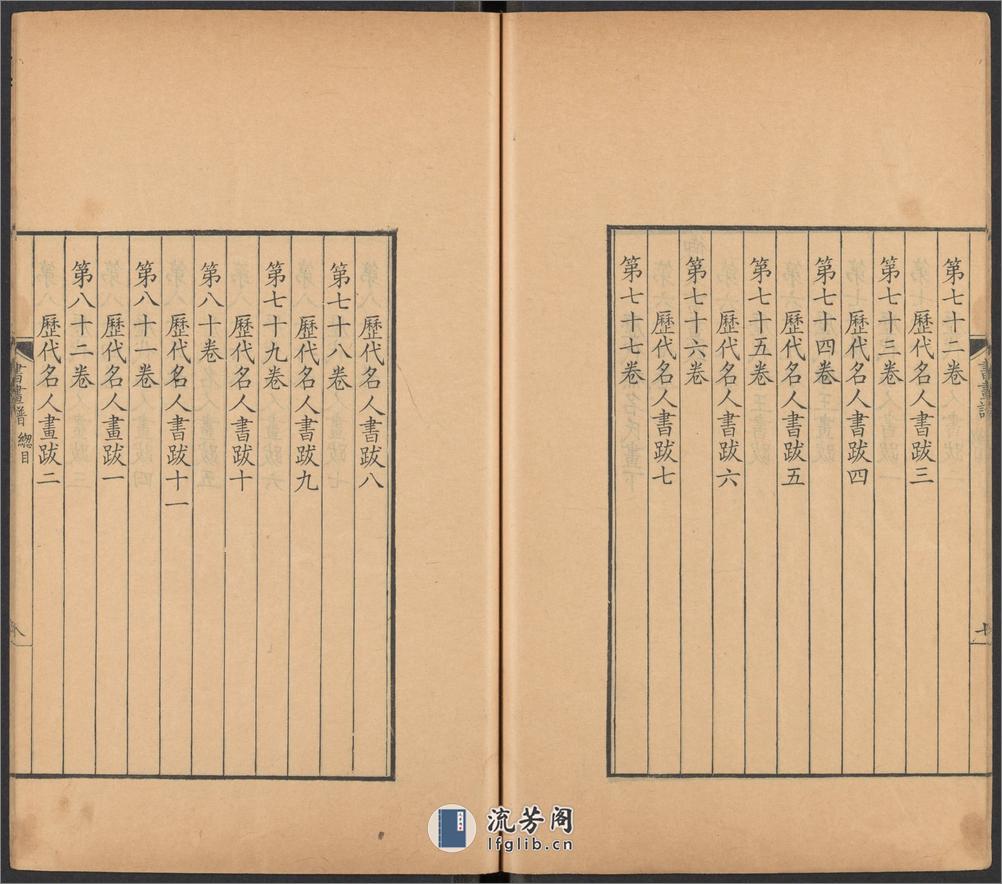 第七十二卷
歷代名人書跋三
第七十三卷
歷代名人書跋四
第七十四卷
歷代名人書跋五
第七十五卷
歷代名人書跋六
第七十六卷
歷代名人書跋七
第七十七卷
歷代名人書跋八
第七十八卷
歷代名人書跋九
第七十九卷
歷代名人書跋十
第八十卷
歷代名人書跋十一
第八十一卷
歷代名人畫跋一
第八十二卷
歷代名人畫跋二
書畫譜 總目
八
書畫譜
七
流芳阁
lfglib.cn